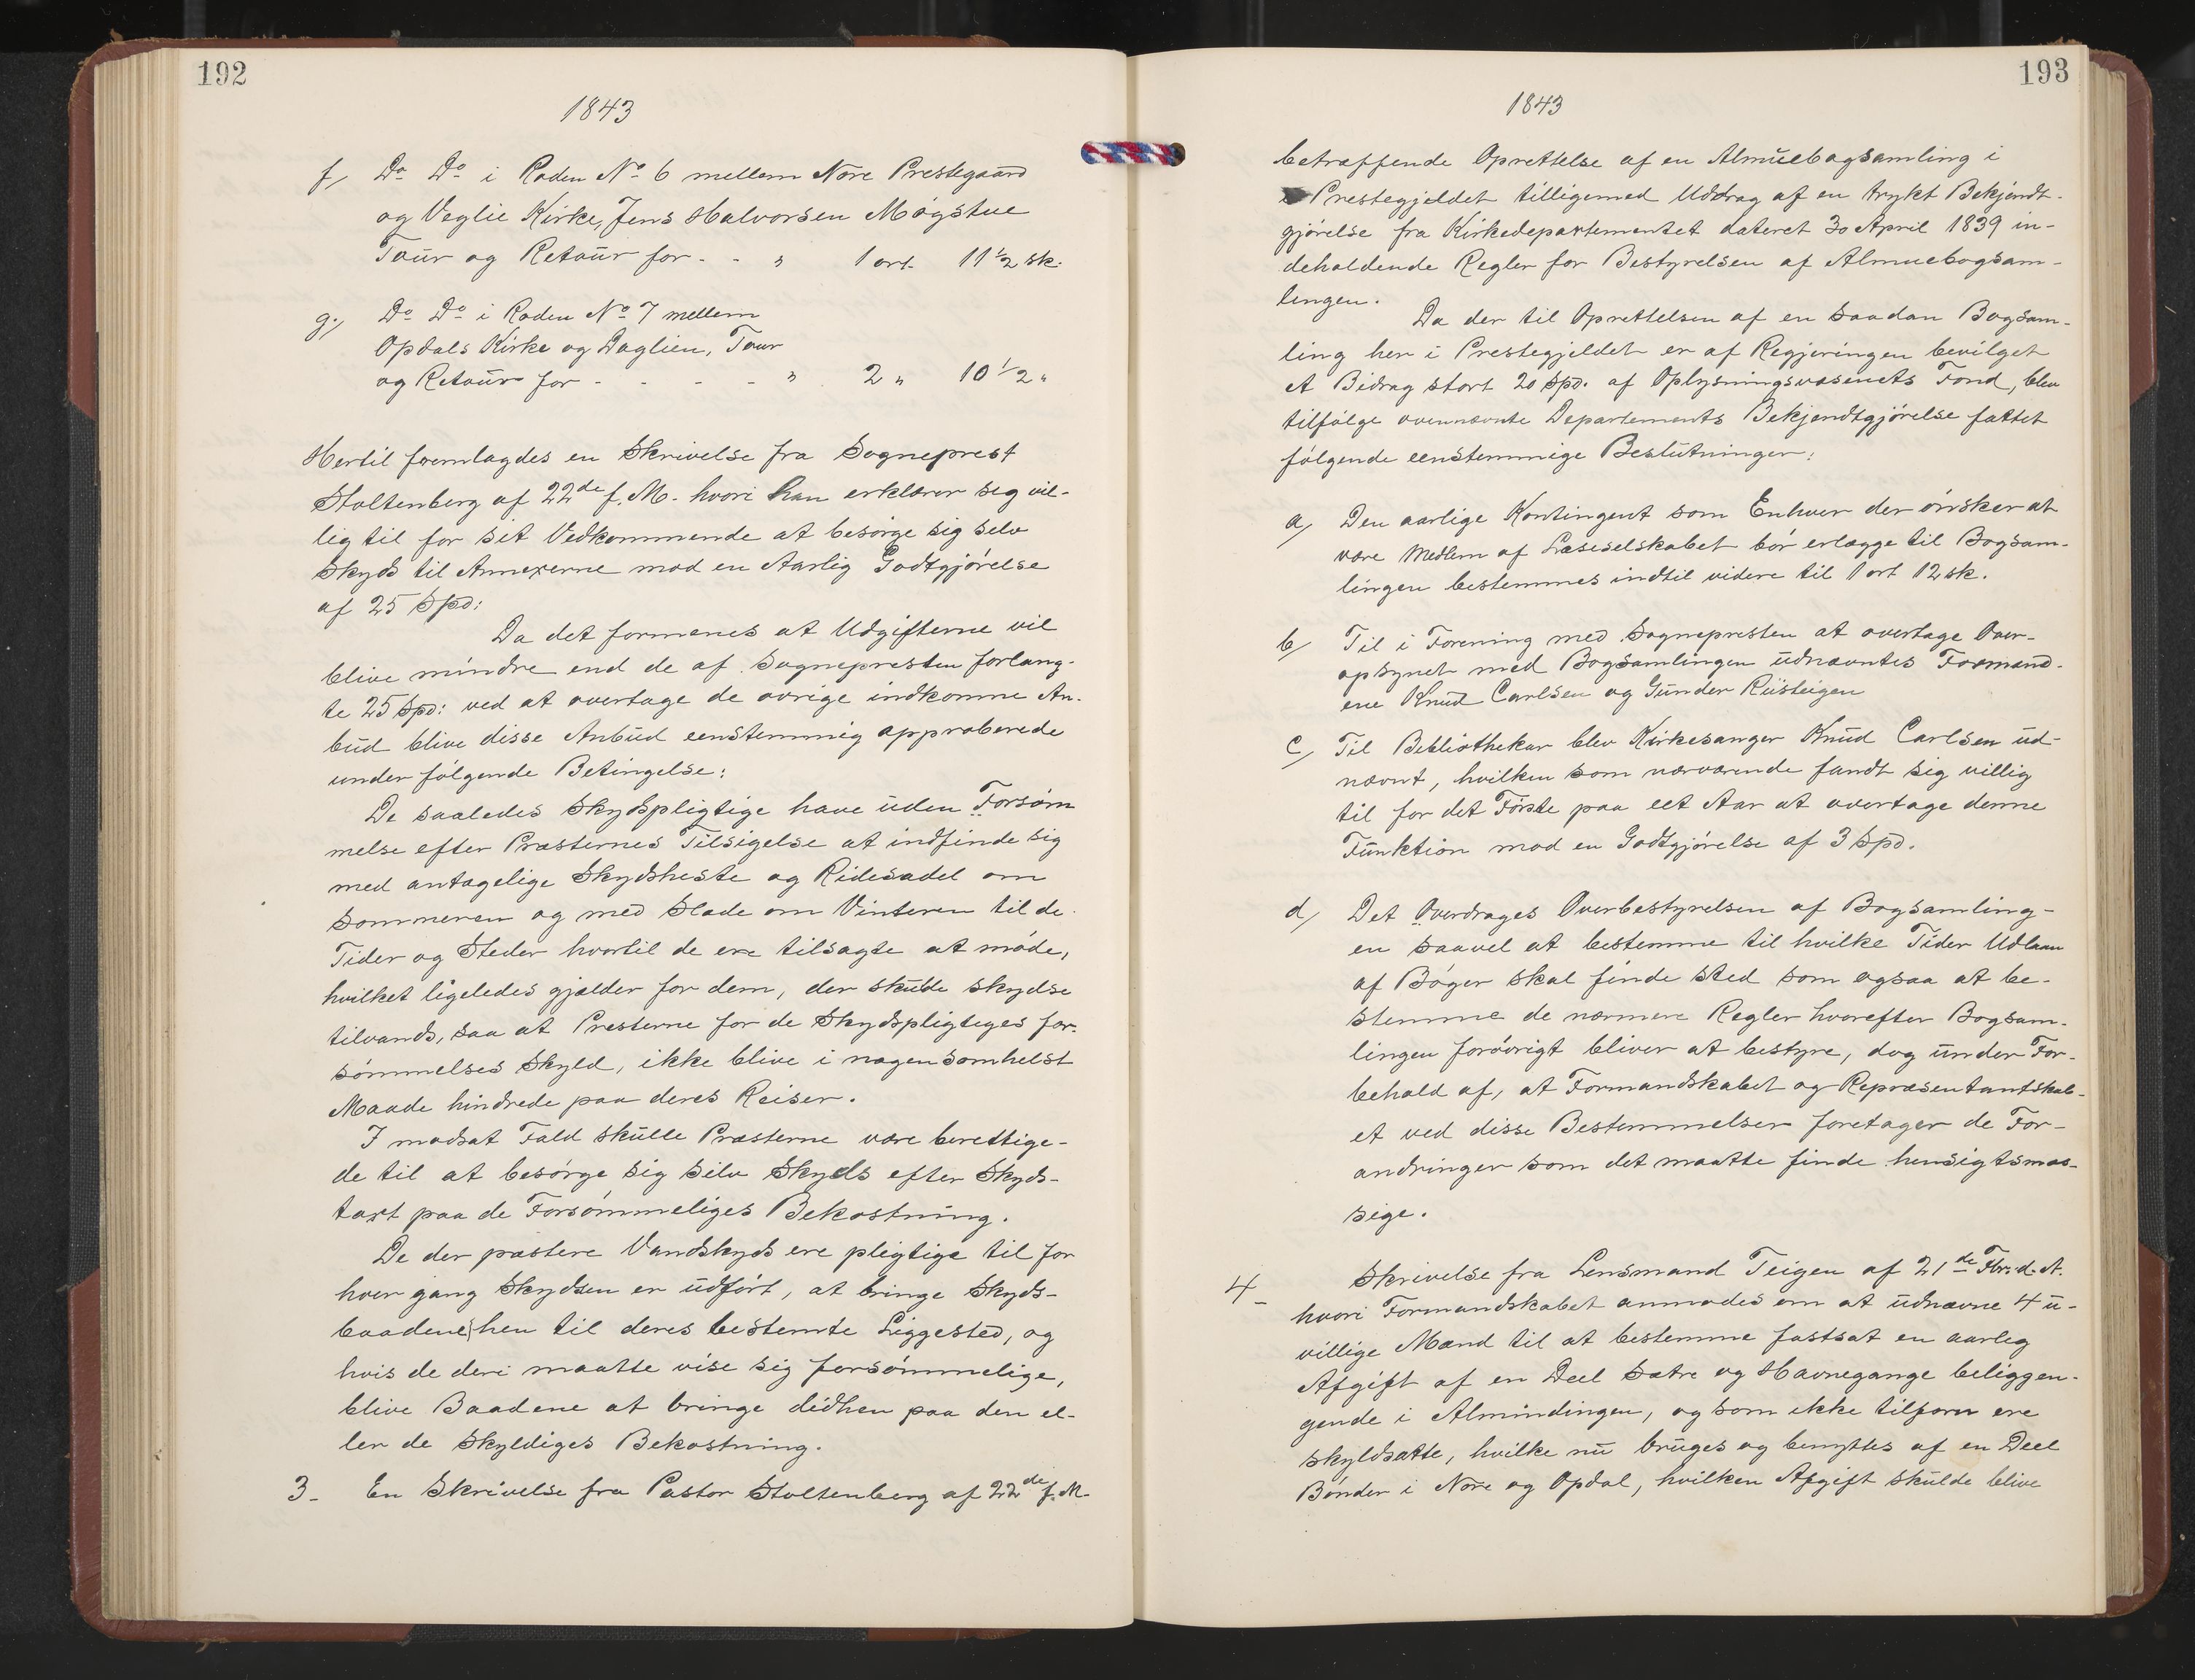 192
1843
f/ Do Do i Roden No 6 mellem Nore Prestegaard
og Veglie Kirke, Jens Halvorsen Møgstue
Tour og Retour for - - " 1 ort. 11 1/2 sk.
g./ Do Do i Roden No 7 mellem
Opdals Kirke og Daglien, Tour
og Retour for - - - - " 2 " 10 1/2 "
Hertil fremlagdes en Skrivelse fra Sogneprest
Stoltenberg af 22de f. M. hvori han erklærer seg vil-
lig til for sit Vedkommende at besørge sig selv
Skyds til Annexerne mod en Aarlig Godtgjørelse
af 25 Spd:
Da det formenes at Udgifterne vil
blive mindre end de af Sognepresten forlang-
te 25 Spd: ved at overtage de øvrige indkomne An-
bud blive disse Anbud eenstemmig approberede
under følgende Betingelse:
De saaledes Skydspligtige have uden Forsøm
melse efter Præsternes Tilsigelse at indfinde sig
med antagelige Skydsheste og Ridesadel om
Sommeren og med Slæde om Vinteren til de
Tider og Steder hvortil de ere tilsagte at møde,
hvilket ligeledes gjælder for dem, der skulde skydse
tilvands, saa at Presterne for de Skydspligtiges for-
sømmelses Skyld, ikke blive i nogensomhelst
Maade hindrede paa deres Reiser.
I modsat Fald skulle Præsterne være berettige-
de til at besørge sig selv Skyds efter Skyds-
taxt paa de Forsømmeliges Bekostning.
De der præstere Vandskyds ere pligtige til for
hver gang Skydsen er udført, at bringe Skyds-
baadene hen til deres bestemte Liggested, og
hvis de deri maatte vise sig forsømmelige,
blive Baadene at bringe didhen paa den el-
ler de Skyldiges Bekostning.
3- En Skrivelse fra Pastor Stoltenberg af 22de f. M.
193
1843
betræffende Oprettelse af en Almuebogsamling i
Prestegjeldet tilligemed Uddrag af en trykt Bekjendt-
gjørelse fra Kirkedepartementet dateret 30 April 1839 in-
deholdende Regler for Bestyrelsen af Almuebogsam-
lingen.
Da der til Oprettelsen af en saadan Bogsam-
ling her i Prestegjeldet er af Regjeringen bevilget
et Bidrag stort 20 Spd. af Oplysningsvæsenets Fond, blev
tilfølge ovennævnte Departements Bekjendtgjørelse fattet
følgende eenstemmige Beslutninger:
a/ Den aarlige Kontingent som Enhver der ønsker at
være Medlem af Læseselskabet bør erlægge til Bogsam-
lingen bestemmes indtil videre til 1 ort 12 sk.
b/ Til i Forening med Sognepresten at overtage Over-
opsynet med Bogsamlingen udnævntes Formænd-
ene Knud Carlsen og Gunder Rusteigen
c/ Til Bibliothekar blev Kirkesanger Knud Carlsen ud-
nævnt, hvilken som nærværende fandt sig villig
til for det Første paa eet Aar at overtage denne
Funktion mod en Godtgjørelse af 3 Spd.
d/ Det Overdrages Overbestyrelsen af Bogsamling-
en saavel at bestemme til hvilke Tider Udlaan
af Bøger skal finde sted som ogsaa at be-
stemme de nærmere Regler hvorefter Bogsam-
lingen forøvrigt bliver at bestyre, dog under For-
behold af, at Formandskabet og Repræsentantskab-
et ved disse Bestemmelser foretager de For-
andringer som det maatte finde hensigtsmæs-
sige.
4- Skrivelse fra Lensmand Teigen af 21de Fbr. d. A.
hvori Formandskabet anmodes om at udnævne 4 u-
villige Mænd til at bestemme fastsat en aarlig
Afgift af en Deel Sætre og Havnegange beliggen-
gende i Almindingen, og som ikke tilforn ere
skyldsatte, hvilke nu bruges og benyttes af en Deel
Bønder i Nore og Opdal, hvilken Afgift skulde blive